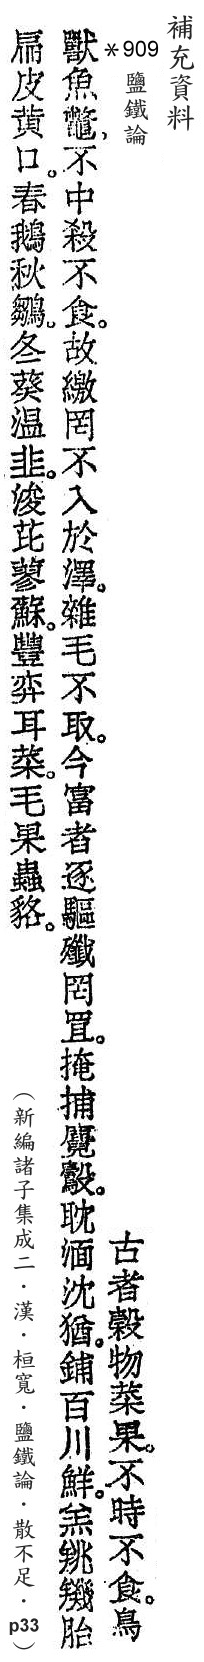 補充資料
*909 鹽鐵論
古者穀物菜果。不時不食。鳥
獸魚鼈,不中殺不食。故繳罔不入於澤。雜毛不取。今富者逐驅殲罔罝。掩捕麑鷇。耽湎沈猶。鋪百川鮮。羔䍮
胎扁皮黃口。春鵝秋鶵。冬葵温韭。浚茈蓼蘇。豐弈耳菜。毛果蟲貉。
(新編諸子集成二.漢.桓寬.鹽鐵論.散不足.p33)